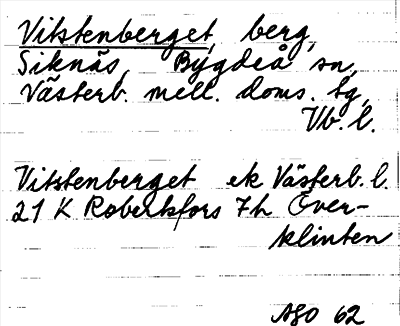 Vitstenberget, berg,
Siknäs, Bygdeå sn,
Västerb. mell. doms. tg,
Vb. l.
Vitstenberget ek Västerb. l.
21 K Robertsfors 7h Över-
klinten
ÅGO 62